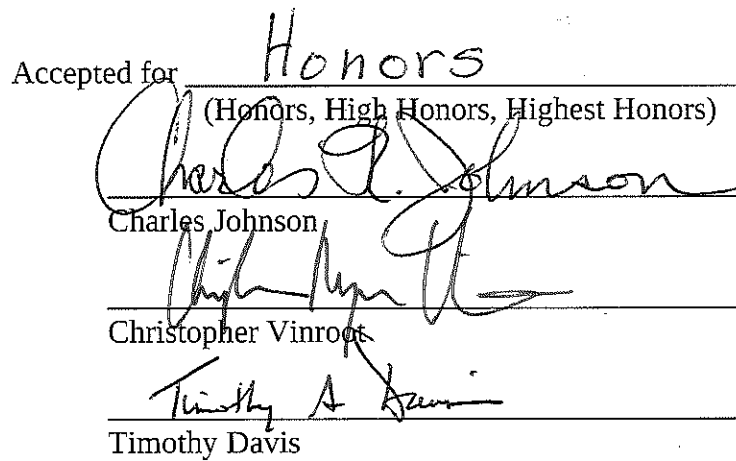 Accepted for Honors
(Honors, High Honors, Highest Honors)
Charles R. Johnson
Charles Johnson
Christopher Vinroot
Timothy A Davis
Timothy Davis